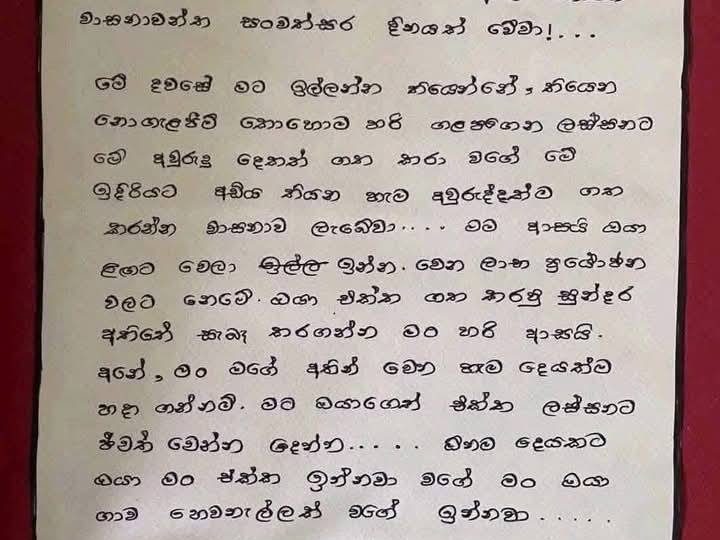 වාසනාවන්ත සංවත්සර දිනයක් වේවා!...
මේ දවසේ මට ඉල්ලන්න තියෙන්නේ, තියෙන
නොගැළපීම් කොහොම හරි ගලපගෙන ලස්සනට
මේ අවුරුදු දෙකත් ගත කරා වගේ මේ
ඉදිරියට අඩිය තියන හැම අවුරුද්දක්ම ගත
කරන්න වාසනාව ලැබේවා.... මම ආසයි ඔයා
ළඟට වෙලා ඉල්ල ඉන්න. වෙන ලාභ ප්‍රයෝජන
වලට නෙමේ. ඔයා එක්ක ගත කරපු සුන්දර
අතීතේ සැබෑ කරගන්න මං හරි ආසයි.
අනේ, මං මගේ අතින් වෙන හැම දෙයක්ම
හදා ගන්නම්. මට ඔයාගෙත් එක්ක ලස්සනට
ජීවත් වෙන්න දෙන්න..... ඕනම දෙයකට
ඔයා මං එක්ක ඉන්නවා වගේ මං ඔයා
ගාව හෙවනැල්ලක් වගේ ඉන්නවා.....